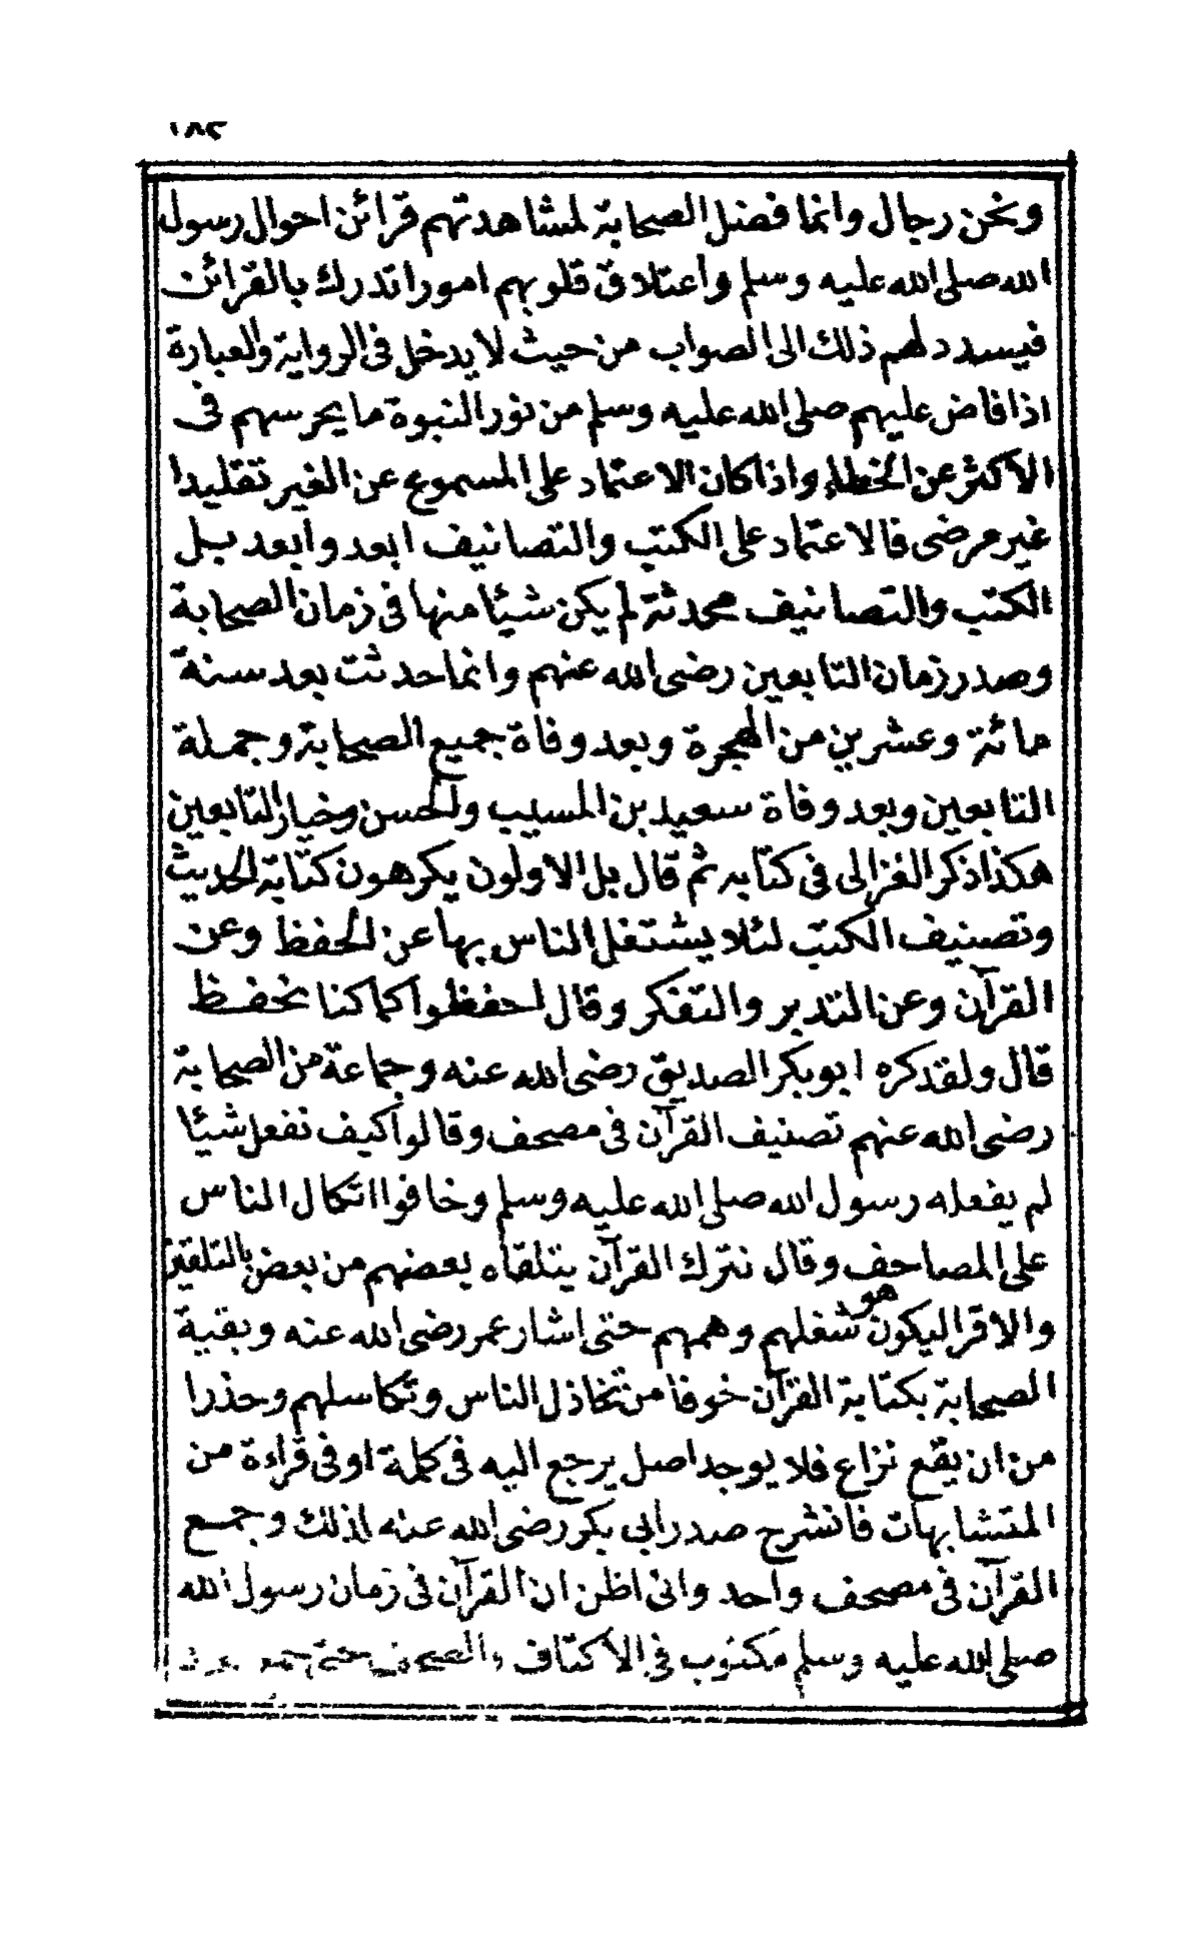 ١٨٢
ونحن رجال وانما فضل الصحابة لمشاهدتهم قرائن احوال رسول
الله صلى الله عليه وسلم واعتلاق قلوبهم امورا تدرك بالقرائن
فيسدد لهم ذلك الى الصواب من حيث لا يدخل فى الرواية والعبارة
اذا فاض عليهم صلى الله عليه وسلم من نور النبوة ما يحرسهم فى
الأكثر عن الخطاء واذا كان الاعتماد على المسموع عن الغير تقليدا
غير مرضى فالاعتماد على الكتب والتصانيف ابعد وابعد بل
الكتب والتصانيف محدثة لم يكن شيئا منها فى زمان الصحابة
وصدر زمان التابعين رضى الله عنهم وانما حدثت بعد سنة
مائة وعشرين من الهجرة وبعد وفاة جميع الصحابة وجملة
التابعين وبعد وفاة سعيد بن المسيب والحسن وخيار التابعين
هكذا ذكر الغزالى فى كتابه ثم قال بل الاولون يكرهون كتابة الحديث
وتصنيف الكتب لئلا يشتغل الناس بها عن الحفظ وعن
القرآن وعن التدبر والتفكر وقال احفظوا كما كنا نحفظ
قال ولقد كره ابو بكر الصديق رضى الله عنه وجماعة من الصحابة
رضى الله عنهم تصنيف القرآن فى مصحف وقالوا كيف نفعل شيئا
لم يفعله رسول الله صلى الله عليه وسلم وخافوا اتكال الناس
على المصاحف وقال نترك القرآن يتلقاه بعضهم من بعض بالتلقين
والاقرا ليكون هو شغلهم وهمهم حتى اشار عمر رضى الله عنه وبقية
الصحابة بكتابة القرآن خوفا من تخاذل الناس وتكاسلهم وحذرا
من ان يقع نزاع فلا يوجد اصل يرجع اليه فى كلمة او فى قراءة من
المتشابهات فانشرح صدر ابى بكر رضى الله عنه لذلك وجمع
القرآن فى مصحف واحد وانى اظن ان القرآن فى زمان رسول الله
صلى الله عليه وسلم مكتوب فى الأكتاف والصحاف حتى جمع